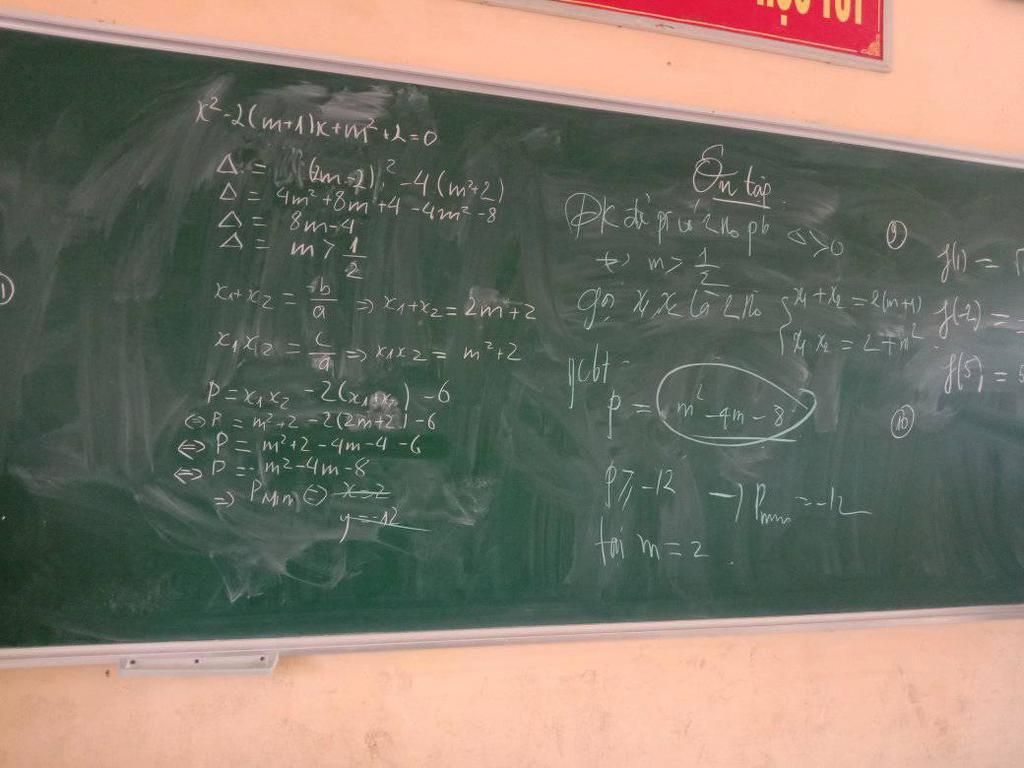 HỌC TỐT
x² - 2(m+1)x + m² + 2 = 0
Δ = (2m-2)² - 4(m²+2)
Δ = 4m² + 8m + 4 - 4m² - 8
Δ = 8m - 4
Δ = m > 1/2
1
x₁ + x₂ = -b/a ⇒ x₁ + x₂ = 2m + 2
x₁x₂ = c/a ⇒ x₁x₂ = m² + 2
P = x₁x₂ - 2(x₁+x₂) - 6
⇔ P = m² + 2 - 2(2m+2) - 6
⇔ P = m² + 2 - 4m - 4 - 6
⇔ P = m² - 4m - 8
⇒ P Min ⇔ x = 2
y = -12
Ôn tập
ĐK để pt có 2 no pb Δ > 0
m > 1/2
gọi x₁ x₂ là 2 no { x₁ + x₂ = 2(m+1)
x₁ x₂ = 2 + m²
ycbt
P = m² - 4m - 8
P ≥ -12 → Pmin = -12
tại m = 2
9
f(1) =
f(-2) =
f(5) =
10